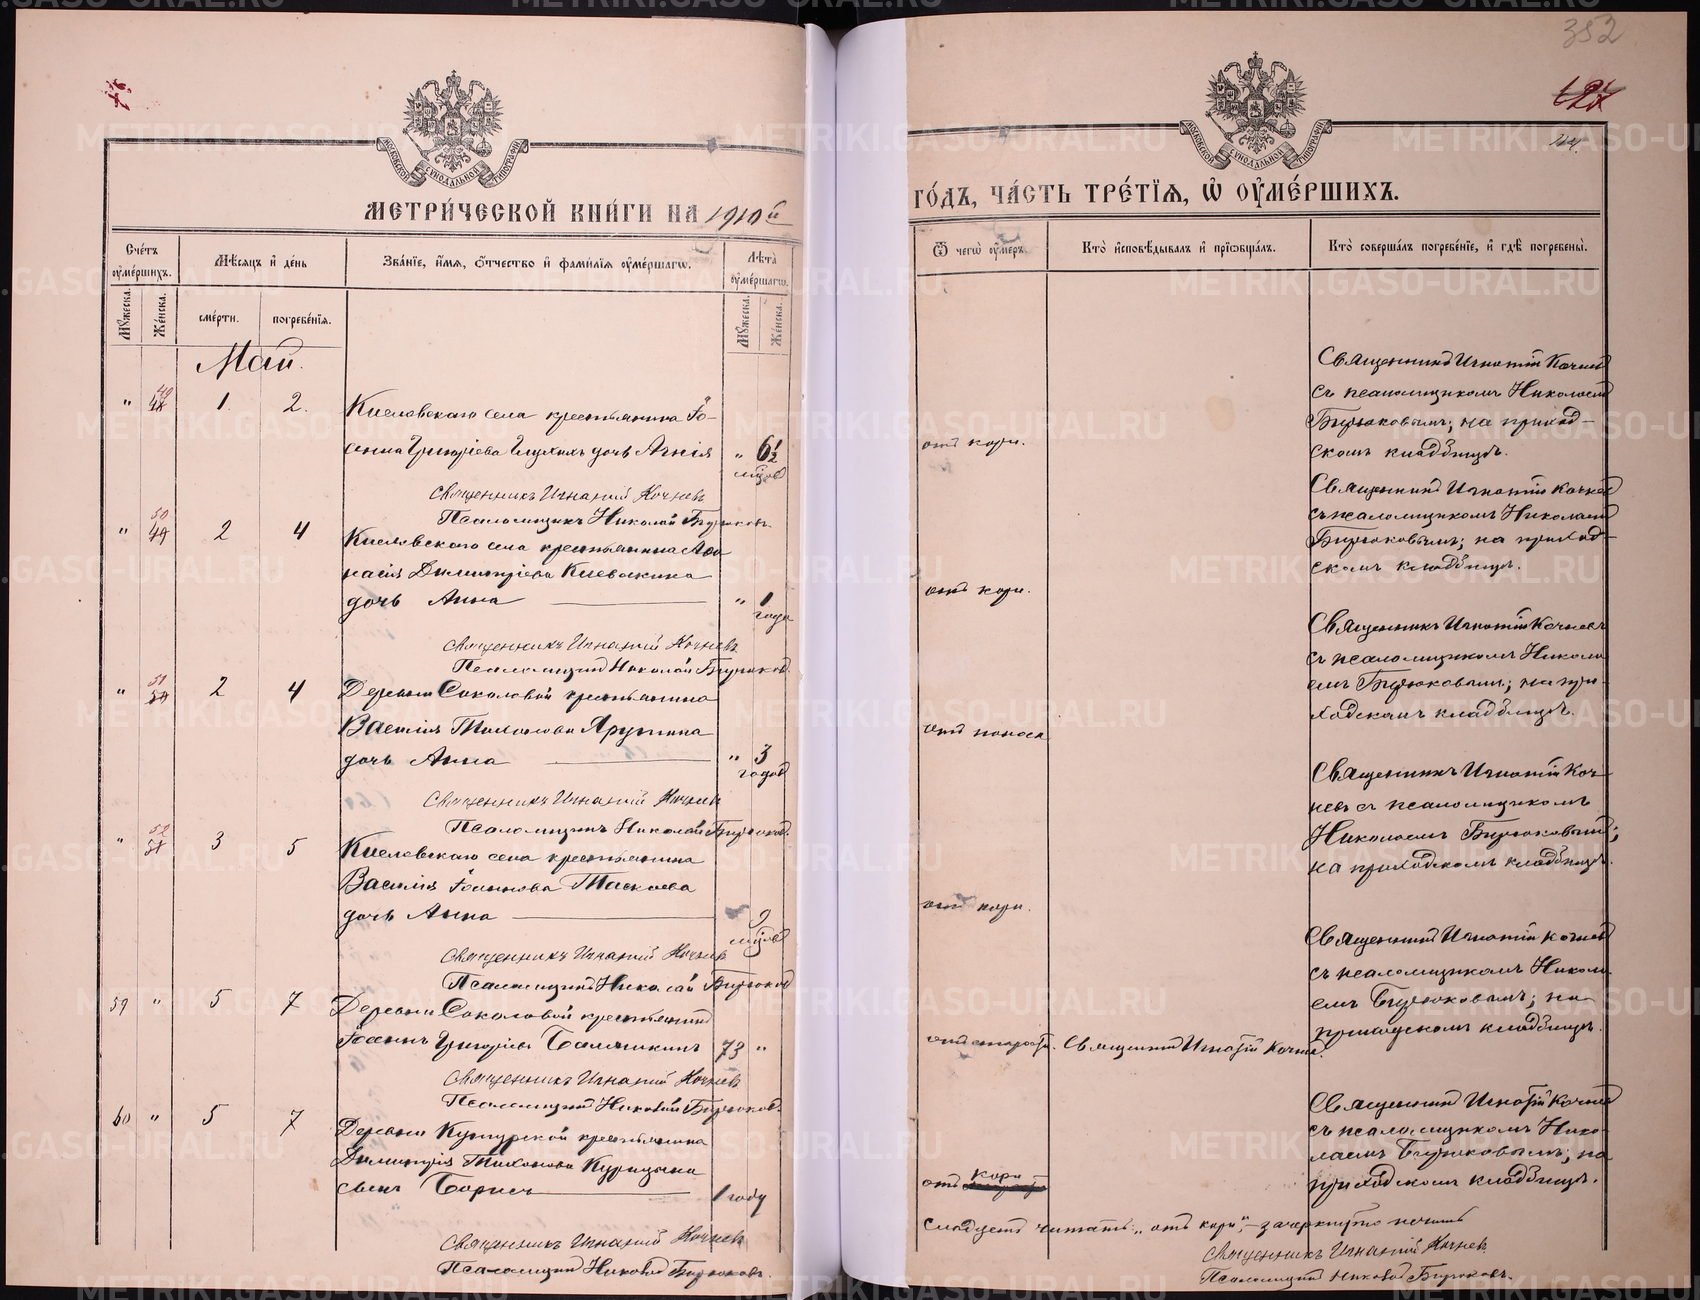 352
127
124.
МОСКОВСКОЙ СѴНОДАЛЬНОЙ ТИПОГРАФІИ
МОСКОВСКОЙ СѴНОДАЛЬНОЙ ТИПОГРАФІИ
МЕТРИ́ЧЕСКОЙ КНИ́ГИ НА 1910й
ГО́ДЪ, ЧА́СТЬ ТРЕ́ТІЯ, Ѡ҆ ОУ҆МЕ́РШИХЪ.
Сче́тъ оу҆ме́ршихъ.
Мѣ́сяцъ и҆ де́нь
Зва́нїе, и҆́мя, ѻ҆́тчество и҆ фами́лїя оу҆ме́ршагѡ.
Лѣ́та оу҆ме́ршагѡ.
Ѿ чегѡ̀ оу҆́меръ.
Кто̀ и҆сповѣ́дывалъ и҆ прїѡбща́лъ.
Кто̀ соверша́лъ погребе́нїе, и҆ гдѣ̀ погребены̀.
Мꙋ́жеска.
Же́нска.
сме́рти.
погребе́нїя.
Мꙋ́жеска.
Же́нска.
Май.
" 49 48 1. 2. Киселевскаго села крестьянина Іо-
анна Григоріева дочь Агнія " 6½
мѣсяцевъ
отъ кори.
Священникъ Игнатій Кочневъ
съ псаломщикомъ Николаемъ
Бирюковымъ; на приход-
скомъ кладбищѣ.
Священникъ Игнатій Кочневъ
Псаломщикъ Николай Бирюковъ.
" 50 49 2 4 Киселевскаго села крестьянина Афа
насія Димитріева
дочь Анна " 1
года
отъ кори.
Священникъ Игнатій Кочневъ
съ псаломщикомъ Николаемъ
Бирюковымъ; на приход-
скомъ кладбищѣ.
Священникъ Игнатій Кочневъ
Псаломщикъ Николай Бирюковъ.
" 51 50 2 4 Деревни Соколовой крестьянина
Василія Тихонова Ярушина
дочь Анна " 3
годовъ
отъ поноса
Священникъ Игнатій Кочневъ
съ псаломщикомъ Никола
емъ Бирюковымъ; на при-
ходскомъ кладбищѣ.
Священникъ Игнатій Кочневъ
Псаломщикъ Николай Бирюковъ.
" 52 51 3 5 Киселевскаго села крестьянина
Василія Іоаннова Таскаева
дочь Анна 9
мѣсяцевъ
отъ кори.
Священникъ Игнатій Коч-
невъ съ псаломщикомъ
Николаемъ Бирюковымъ;
на приходскомъ кладбищѣ.
Священникъ Игнатій Кочневъ
Псаломщикъ Николай Бирюковъ
59 " 5 7 Деревни Соколовой крестьянинъ
Іоаннъ Григоріевъ 73 "
отъ старости. Священникъ Игнатій Кочневъ.
Священникъ Игнатій Кочневъ
съ псаломщикомъ Никола
емъ Бирюковымъ; на
приходскомъ кладбищѣ.
Священникъ Игнатій Кочневъ
Псаломщикъ Николай Бирюковъ.
60 " 5 7 Деревни крестьянина
Димитрія Тихонова Курицына
сынъ Борисъ 1 году
отъ кори
Священникъ Игнатій Кочневъ
съ псаломщикомъ Нико-
лаемъ Бирюковымъ; на
приходскомъ кладбищѣ.
Священникъ Игнатій Кочневъ
Псаломщикъ Николай Бирюковъ.
Слѣдуетъ читать: "отъ кори", зачеркнутое не читать
Священникъ Игнатій Кочневъ
Псаломщикъ Николай Бирюковъ.
METRIKI.GASO-URAL.RU